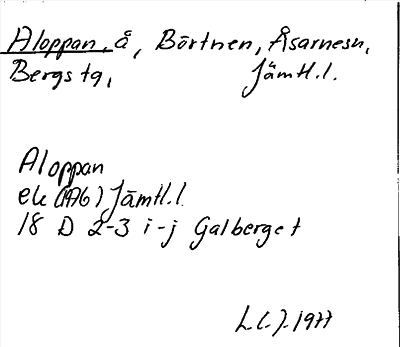 Aloppan, å, Börtnen, Åsarnesn,
Bergs tg, Jämtl.l.
Aloppan
ek (1A6) Jämtl.l.
18 D 2-3 i-j Galberget
1977